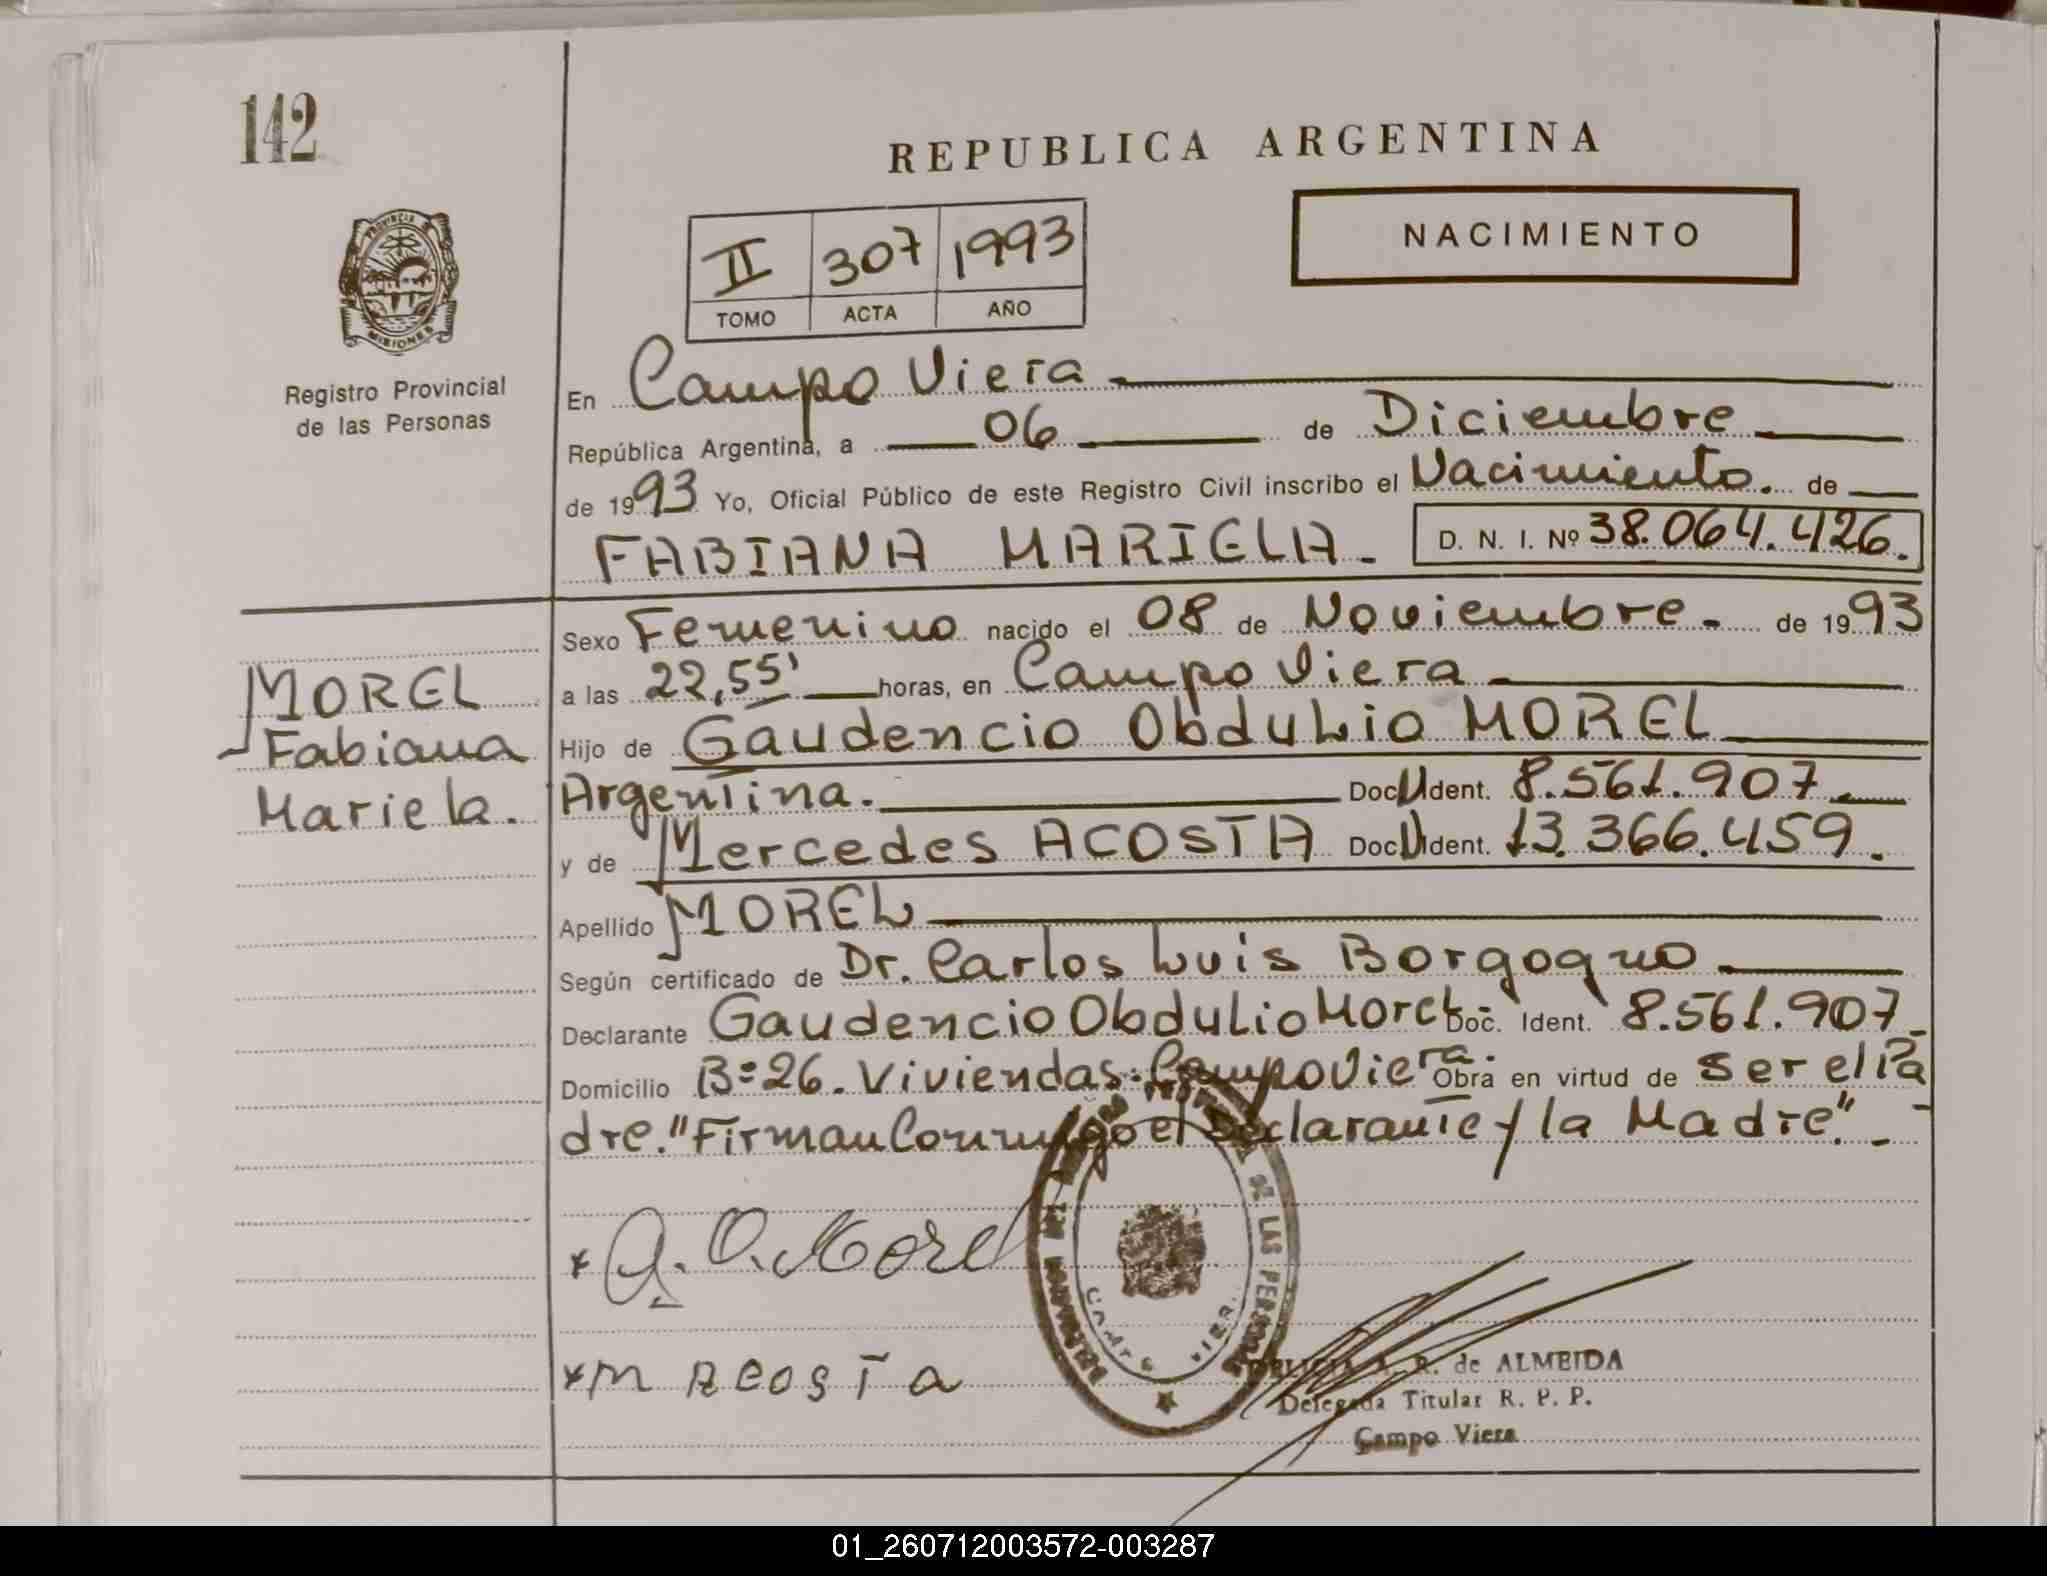 142
REPUBLICA ARGENTINA
NACIMIENTO
II 307 1993
TOMO ACTA AÑO
PROVINCIA
MISIONES
Registro Provincial
de las Personas
En Campo Viera
República Argentina, a 06 de Diciembre
de 1993 Yo, Oficial Público de este Registro Civil inscribo el Nacimiento. de
FABIANA MARIELA- D. N. I. Nº 38.064.426.
MOREL
Fabiana
Mariela.
Sexo Femenino nacido el 08 de Noviembre.- de 1993
a las 22,55' horas, en Campo Viera
Hijo de Gaudencio Obdulio MOREL
Argentina. Doc U Ident. 8.561.907
y de Mercedes ACOSTA Doc U Ident. 13.366.459.
Apellido MOREL
Según certificado de Dr. Carlos Luis Borgogno
Declarante Gaudencio Obdulio Morel Doc. Ident. 8.561.907.-
Domicilio B:26. Viviendas. Campo Viera. Obra en virtud de ser el Pa
dre. "Firman Conmigo el Declarante y la Madre".-
* G. O. Morel
DE LAS PERSONAS
CAMPO VIERA
* M ACOSTA
DELICIA A. R. de ALMEIDA
Delegada Titular R. P. P.
Campo Viera
01_260712003572-003287